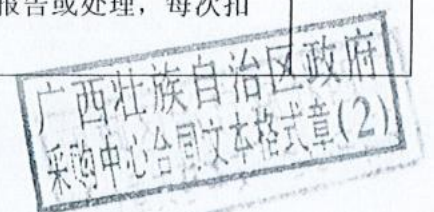 报告或处理，每次扣
广西壮族自治区政府
采购中心合同文本格式章(2)